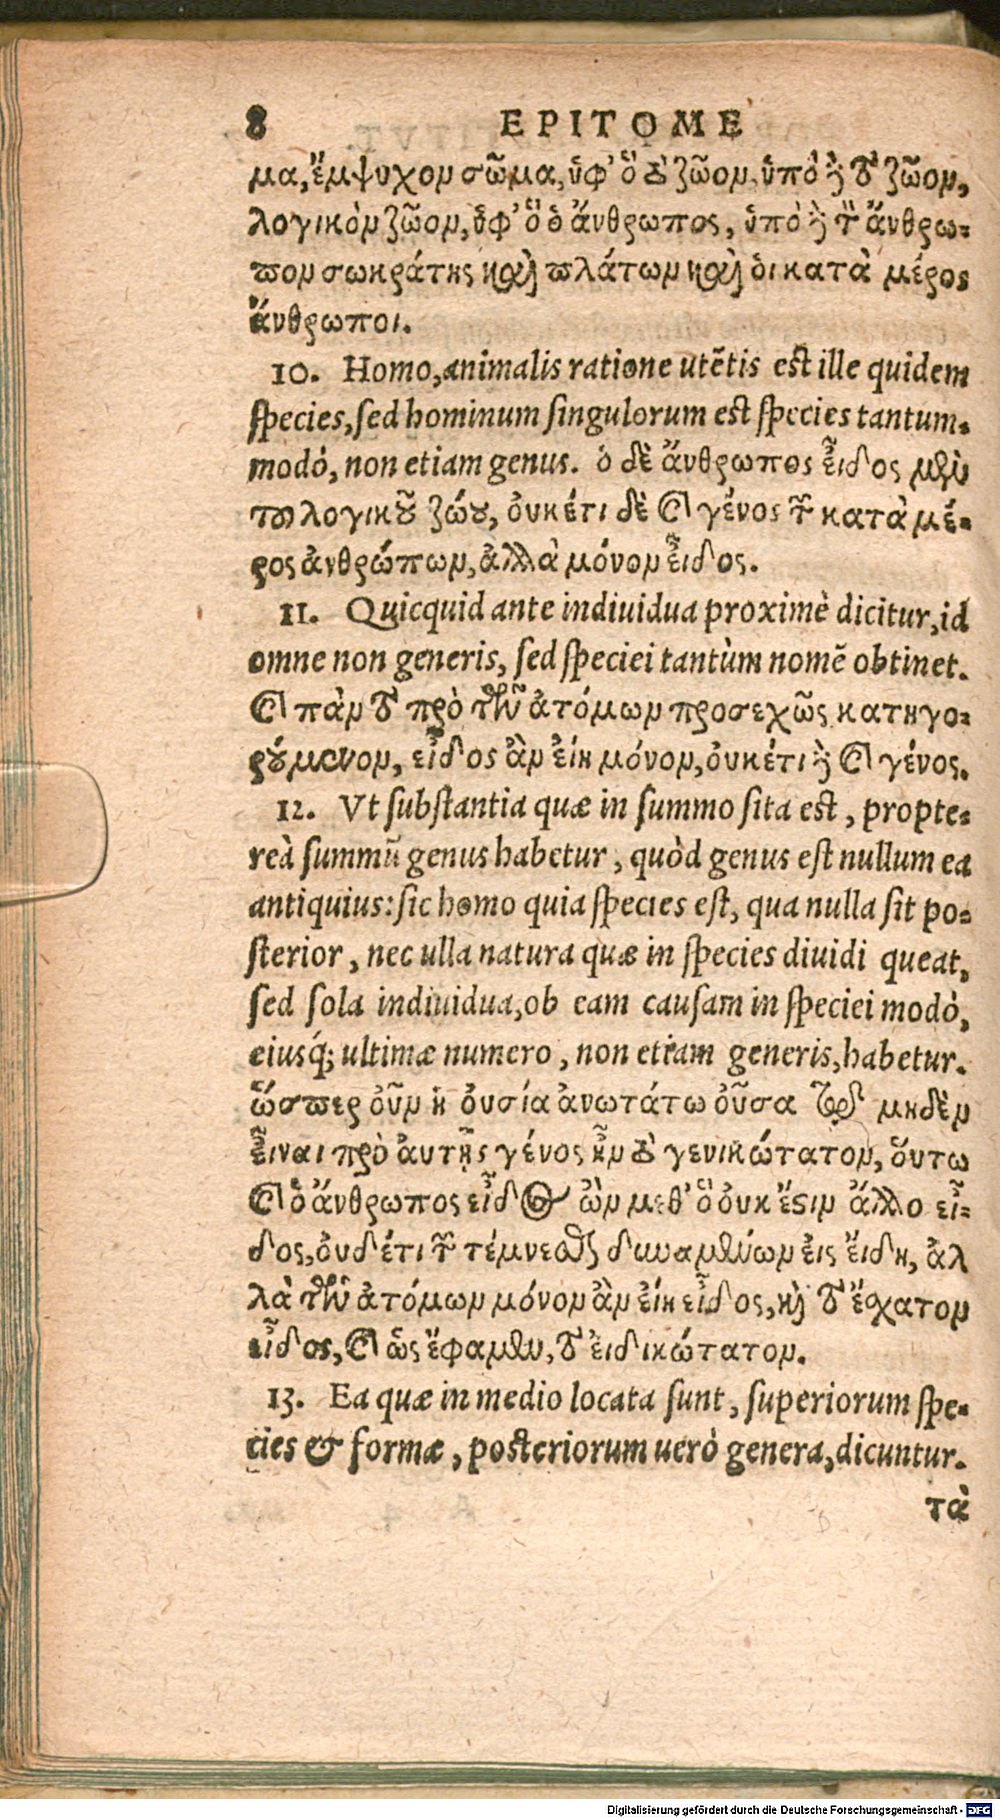 8 EPITOME
μα, ἔμψυχον σῶμα, ὑφ' ὃ τὸ ζῶον, ὑπὸ δὲ τὸ ζῶον,
λογικὸν ζῶον, ὑφ' ὃ ὁ ἄνθρωπος, ὑπὸ δὲ τὸν ἄνθρω-
πον σωκράτης καὶ πλάτων καὶ οἱ κατὰ μέρος
ἄνθρωποι.
10. Homo, animalis ratione utẽtis est ille quidem
species, sed hominum singulorum est species tantum-
modò, non etiam genus. ὁ δὲ ἄνθρωπος εἶδος μὲν
τοῦ λογικοῦ ζώου, οὐκέτι δὲ καὶ γένος τῶν κατὰ μέ-
ρος ἀνθρώπων, ἀλλὰ μόνον εἶδος.
11. Quicquid ante indiuidua proximè dicitur, id
omne non generis, sed speciei tantùm nomẽ obtinet.
καὶ πᾶν τὸ πρὸ τῶν ἀτόμων προσεχῶς κατηγο-
ρούμενον, εἶδος ἂν εἴη μόνον, οὐκέτι δὲ καὶ γένος.
12. Vt substantia quæ in summo sita est, propte-
reà summũ genus habetur, quòd genus est nullum ea
antiquius: sic homo quia species est, qua nulla sit po-
sterior, nec ulla natura quæ in species diuidi queat,
sed sola indiuidua, ob eam causam in speciei modò,
eiusq́; ultimæ numero, non etiam generis, habetur.
ὥσπερ οὖν ἡ οὐσία ἀνωτάτω οὖσα τῷ μηδὲν
εἶναι πρὸ αὐτῆς γένος ἦν τὸ γενικώτατον, οὕτω
καὶ ὁ ἄνθρωπος εἶδος ὢν μεθ' ὃ οὐκ ἔστιν ἄλλο εἶ-
δος, οὐδέ τι τῶν τέμνεσθαι δυναμένων εἰς εἴδη, ἀλ
λὰ τῶν ἀτόμων μόνον ἂν εἴη εἶδος, καὶ τὸ ἔσχατον
εἶδος, καὶ ὡς ἔφαμεν, τὸ εἰδικώτατον.
13. Ea quæ in medio locata sunt, superiorum spe-
cies & formæ, posteriorum uerò genera, dicuntur.
τὰ
Digitalisierung gefördert durch die Deutsche Forschungsgemeinschaft - DFG